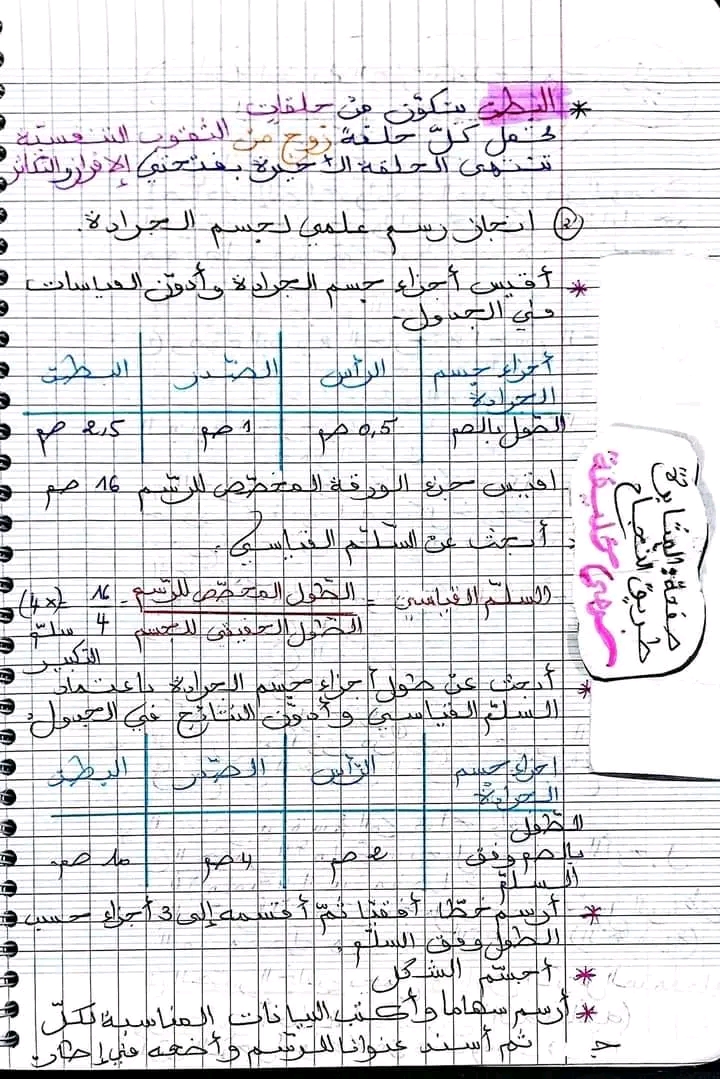 * البطن يتكوّن من حلقات.
تحمل كلّ حلقة زوج من الثقوب التنفسيّة
تنتهي الحلقة الأخيرة بفتحتي الإفراز والتكاثر
② انجاز رسم علمي لجسم الجرادة.
* أقيس أجزاء جسم الجرادة وأدوّن القياسات
في الجدول.
أجزاء جسم الجرادة | الرأس | الصّدر | البطن
الطول بالصم | 0,5 صم | 1 صم | 2,5 صم
اقيس جزء الورقة المخصّص للرسم 16 صم
أبحث عن السلّم القياسي.
السلّم القياسي = الطول المخصّص للرسم = 16 = (4x)
الطول الحقيقي للجسم 4 سلّم
التكبير
* أبحث عن طول أجزاء جسم الجرادة باعتماد
السلّم القياسي وأدوّن النتائج في الجدول:
اجزاء جسم الجرادة | الرأس | الصّدر | البطن
الطول بالصم وفق السلّم | 2 صم | 4 صم | 10 صم
* أرسم خطّا أفقيّا ثمّ أقسّمه إلى 3 أجزاء حسب
الطول وفق السلّم.
* أجسّم الشكل
* أرسم سهاما وأكتب البيانات المناسبة لكلّ
ج ثم أسند عنوانا للرسم وأضعه في إطار.
صفحة: المثابرة
طريق النجاح